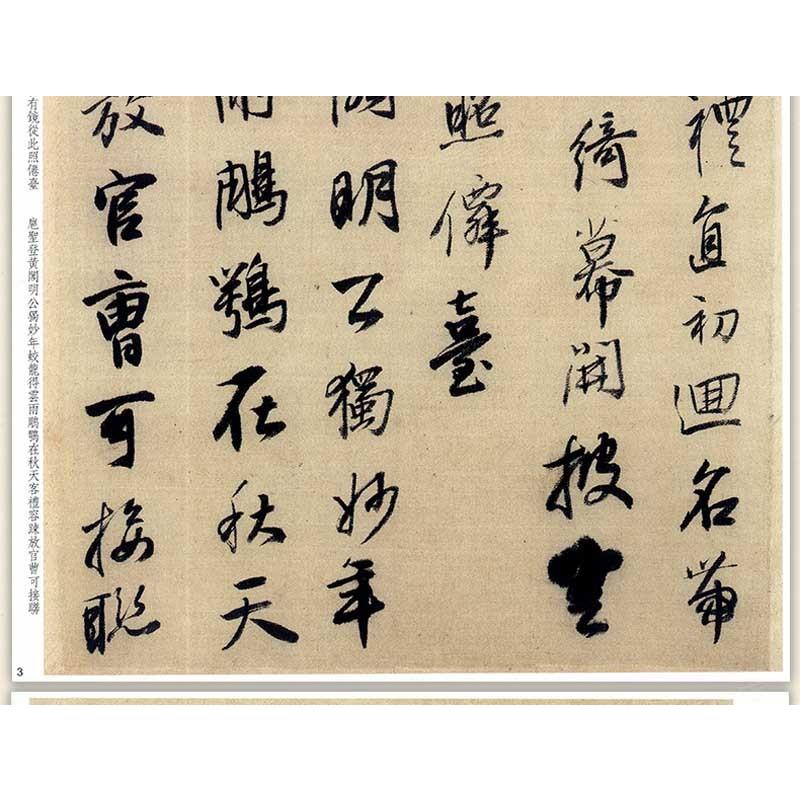 禮直初迴名帶
綺幕開披雲
照僊臺
閣明公獨妙年
雨鵰鶚在秋天
放官曹可接聯
有鏡從此照僊臺
扈聖登黄閣明公獨妙年蛟龍得雲雨鵰鶚在秋天客禮容疎放官曹可接聯
3